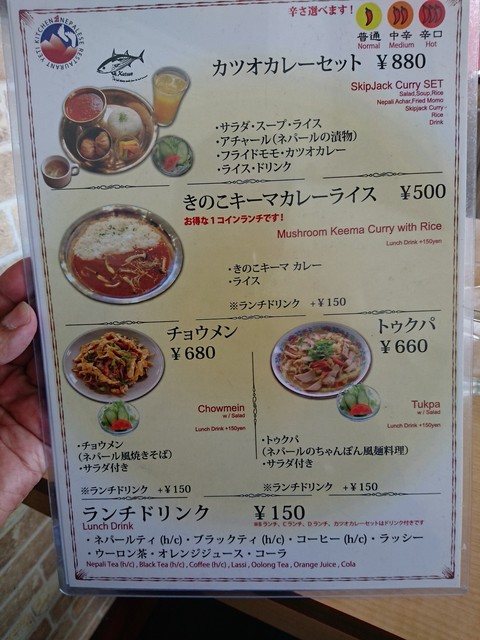 辛さ選べます！
普通 中辛 辛口
Normal Medium Hot
KITCHEN NEPALESE
RESTAURANT YETI
Katsuo
カツオカレーセット ￥880
SkipJack Curry SET
Salad,Soup,Rice
Nepali Achar,Fried Momo
Skipjack Curry・
Rice
Drink
・サラダ・スープ・ライス
・アチャール（ネパールの漬物）
・フライドモモ・カツオカレー
・ライス・ドリンク
きのこキーマカレーライス ￥500
お得な１コインランチです！
Mushroom Keema Curry with Rice
Lunch Drink +150yen
・きのこキーマ カレー
・ライス
※ランチドリンク ＋￥150
チョウメン
￥680
Chowmein
w / Salad
Lunch Drink +150yen
・チョウメン
（ネパール風焼きそば）
・サラダ付き
※ランチドリンク ＋￥150
トゥクパ
￥660
Tukpa
w / Salad
Lunch Drink +150yen
・トゥクパ
（ネパールのちゃんぽん風麺料理）
・サラダ付き
※ランチドリンク ＋￥150
ランチドリンク ￥150
Lunch Drink
ランチ、Cランチ、Dランチ、カツオカレーセットはドリンク付きです
・ネパールティ (h/c)・ブラックティ (h/c)・コーヒー (h/c)・ラッシー
・ウーロン茶・オレンジジュース・コーラ
Nepali Tea (h/c) , Black Tea (h/c) , Coffee (h/c) , Lassi , Oolong Tea , Orange Juice , Cola